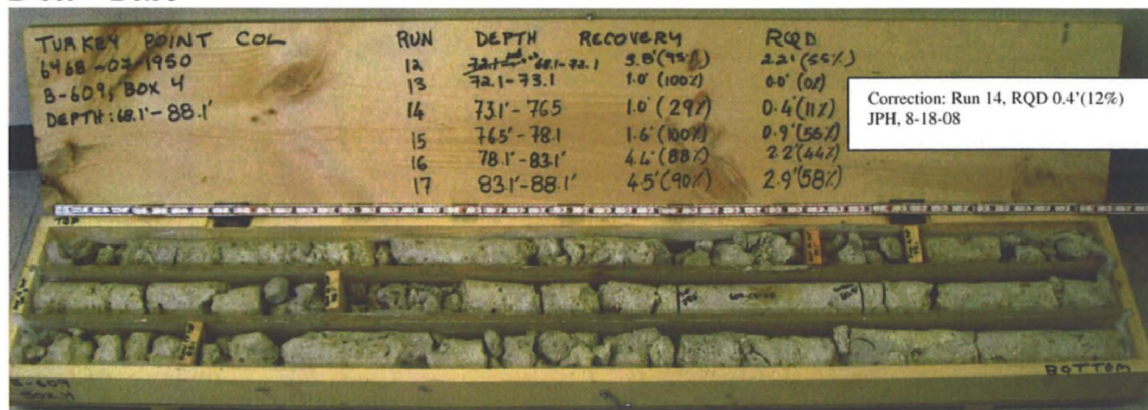 TURKEY POINT COL
6468-07-1950
B-609, BOX 4
DEPTH: 68.1'-88.1'
RUN DEPTH RECOVERY RQD
12 68.1-72.1 3.8' (95%) 2.2' (55%)
13 72.1-73.1 1.0' (100%) 0.0' (0%)
14 73.1'-76.5 1.0' (29%) 0.4' (11%)
15 76.5'-78.1 1.6' (100%) 0.9' (56%)
16 78.1'-83.1' 4.4' (88%) 2.2' (44%)
17 83.1'-88.1' 4.5' (90%) 2.9' (58%)
Correction: Run 14, RQD 0.4'(12%)
JPH, 8-18-08
TOP
BOTTOM
B-609
BOX 4